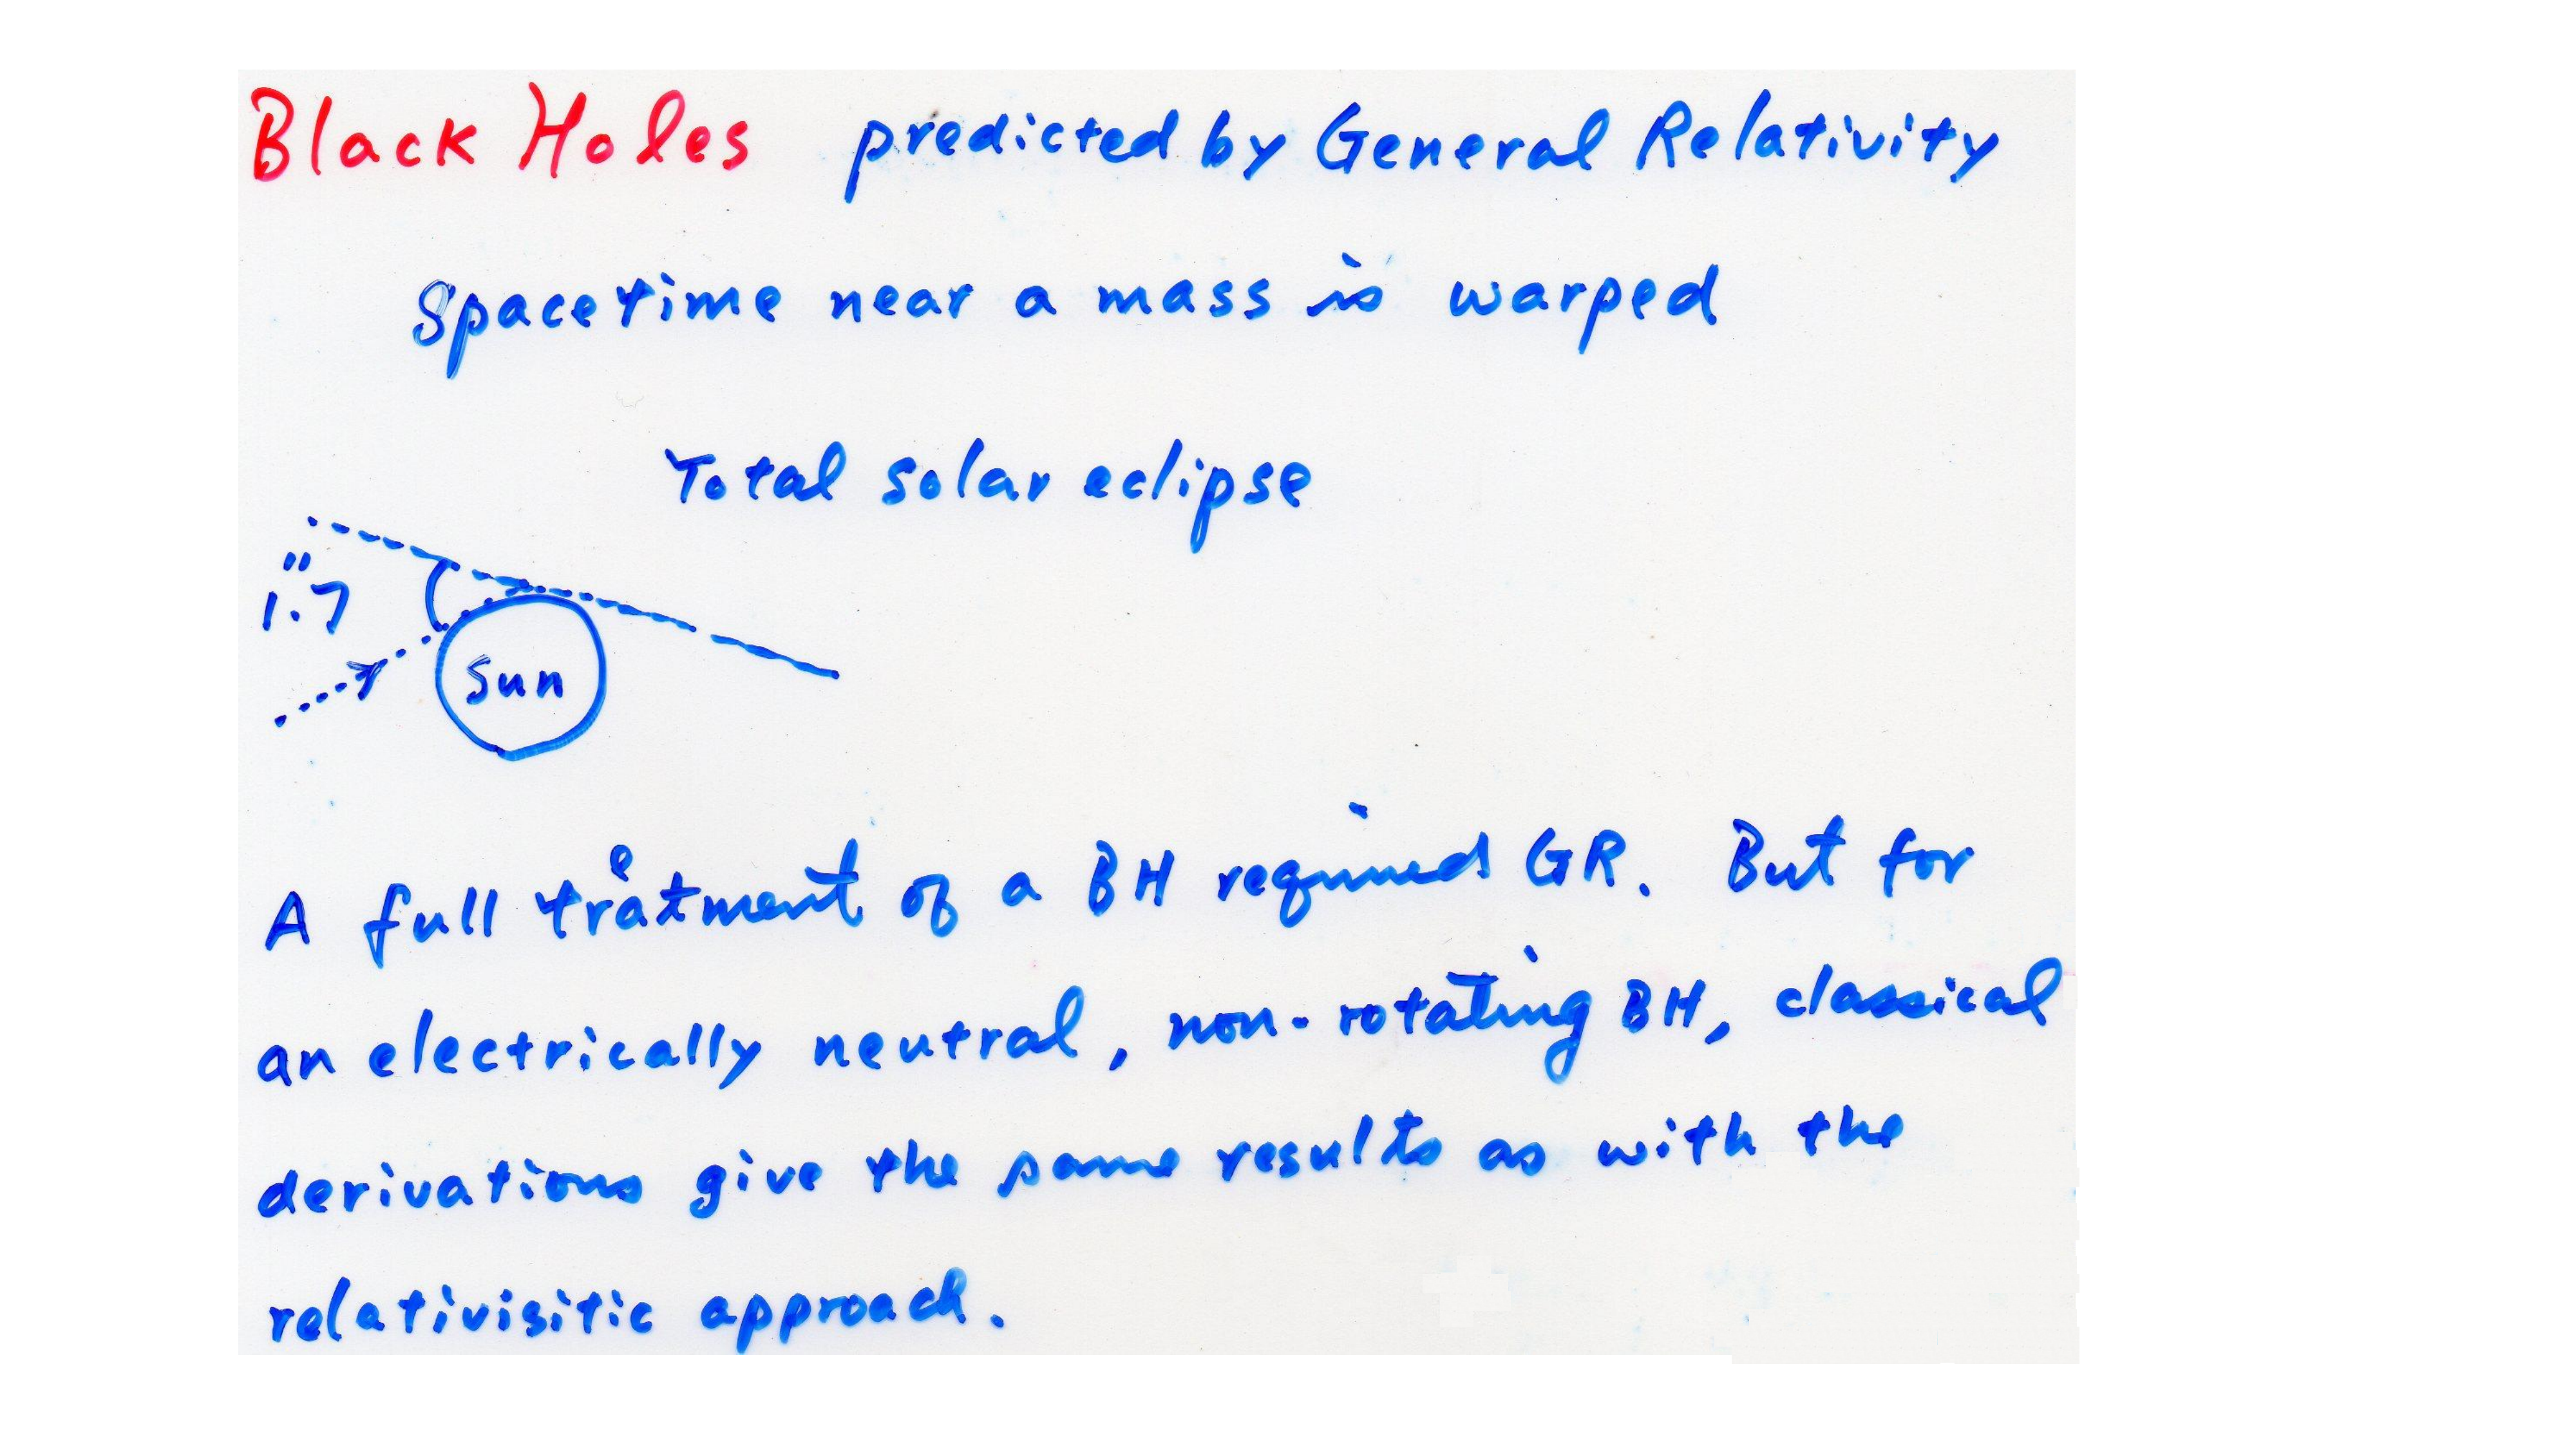 Black Holes predicted by General Relativity
Spacetime near a mass is warped
Total solar eclipse
1."7
Sun
A full treatment of a BH required GR. But for
an electrically neutral, non-rotating BH, classical
derivations give the same results as with the
relativisitic approach.